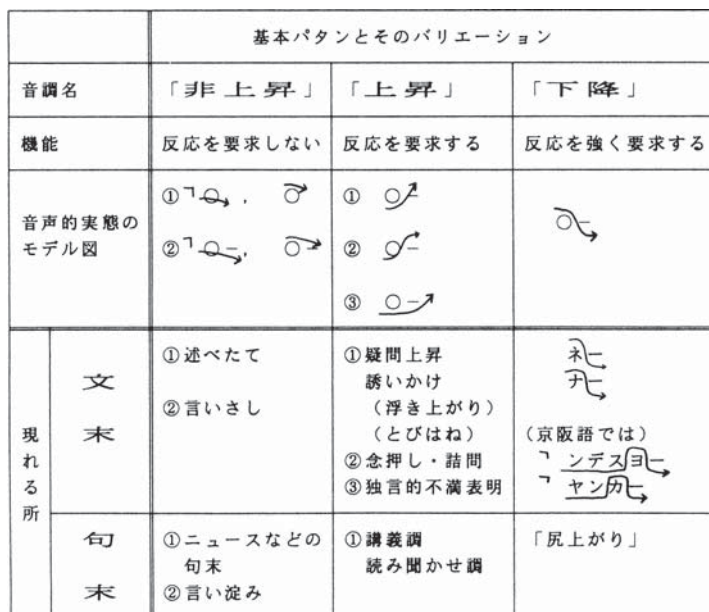 基本パタンとそのバリエーション
音調名 「非上昇」 「上昇」 「下降」
機能 反応を要求しない 反応を要求する 反応を強く要求する
音声的実態の
モデル図
①¬○, ○
②¬○−, ○−
① ○−
② ○−
③ ○−
○−
現れる所
文末
①述べたて
②言いさし
①疑問上昇
誘いかけ
(浮き上がり)
(とびはね)
②念押し・詰問
③独言的不満表明
ネ−
ナ−
(京阪語では)
¬ンデスヨ−
¬ヤンカ−
句末
①ニュースなどの
句末
②言い淀み
①講義調
読み聞かせ調
「尻上がり」